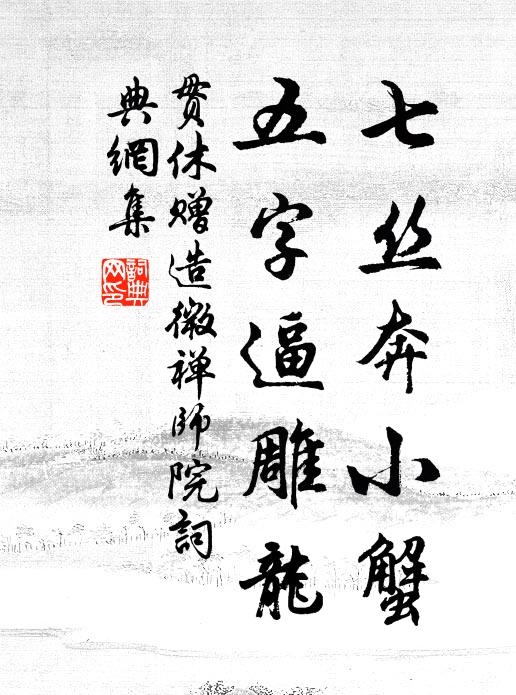 七丝奔小蟹
五字逼雕龍
贯休赠造微禅师院詞
典網集
詞典网印